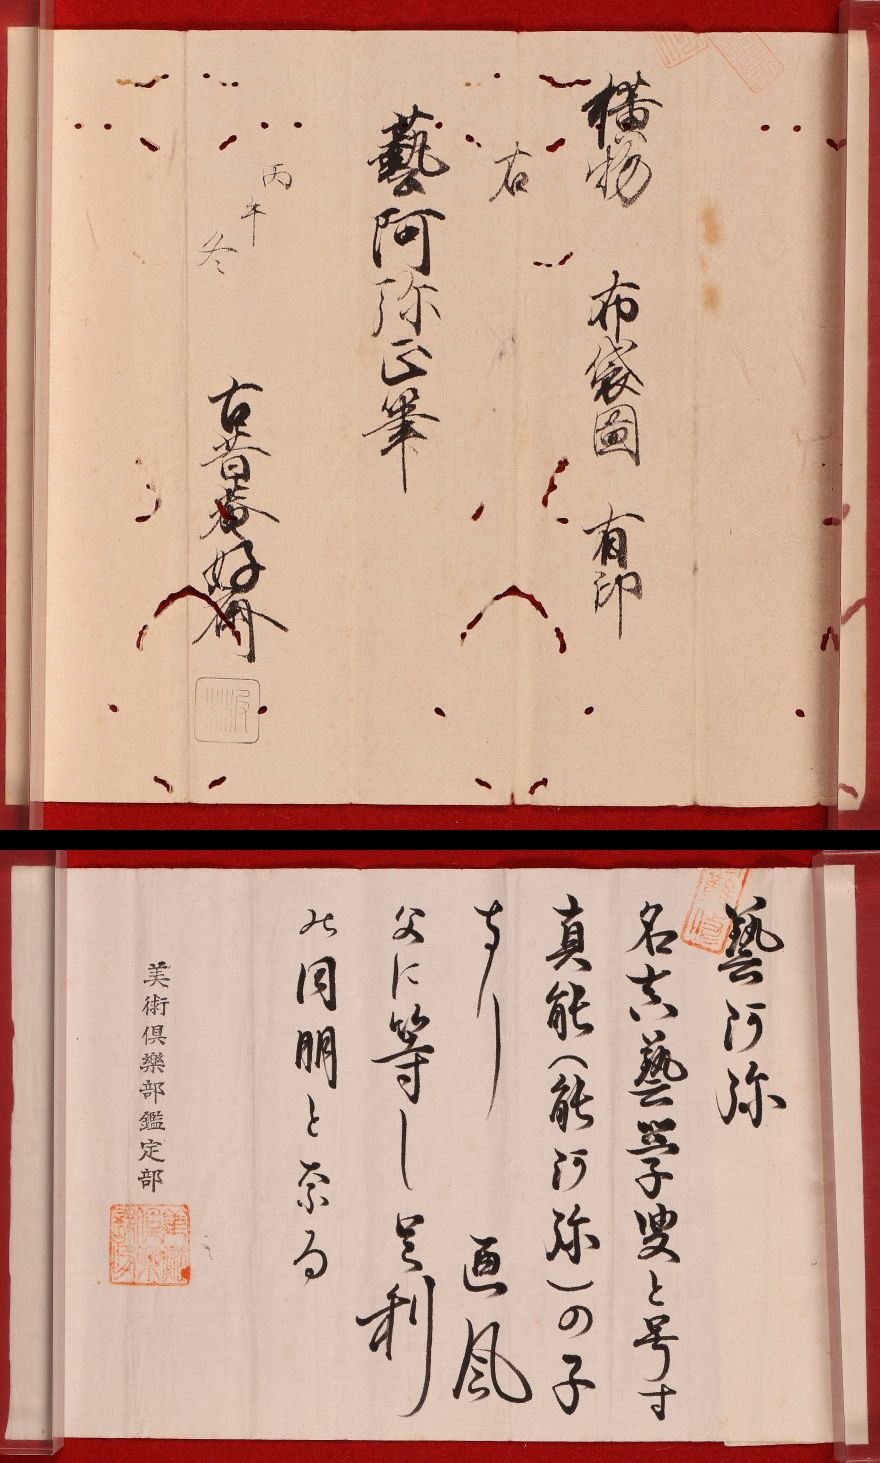 横物 布袋圖 有印
右
藝阿弥正筆
丙午冬
古昔菴好斎
藝阿弥
名真藝学叟と号す
真能(能阿弥)の子
なり 画風
父に等し 足利
の同朋と奈る
美術倶樂部鑑定部